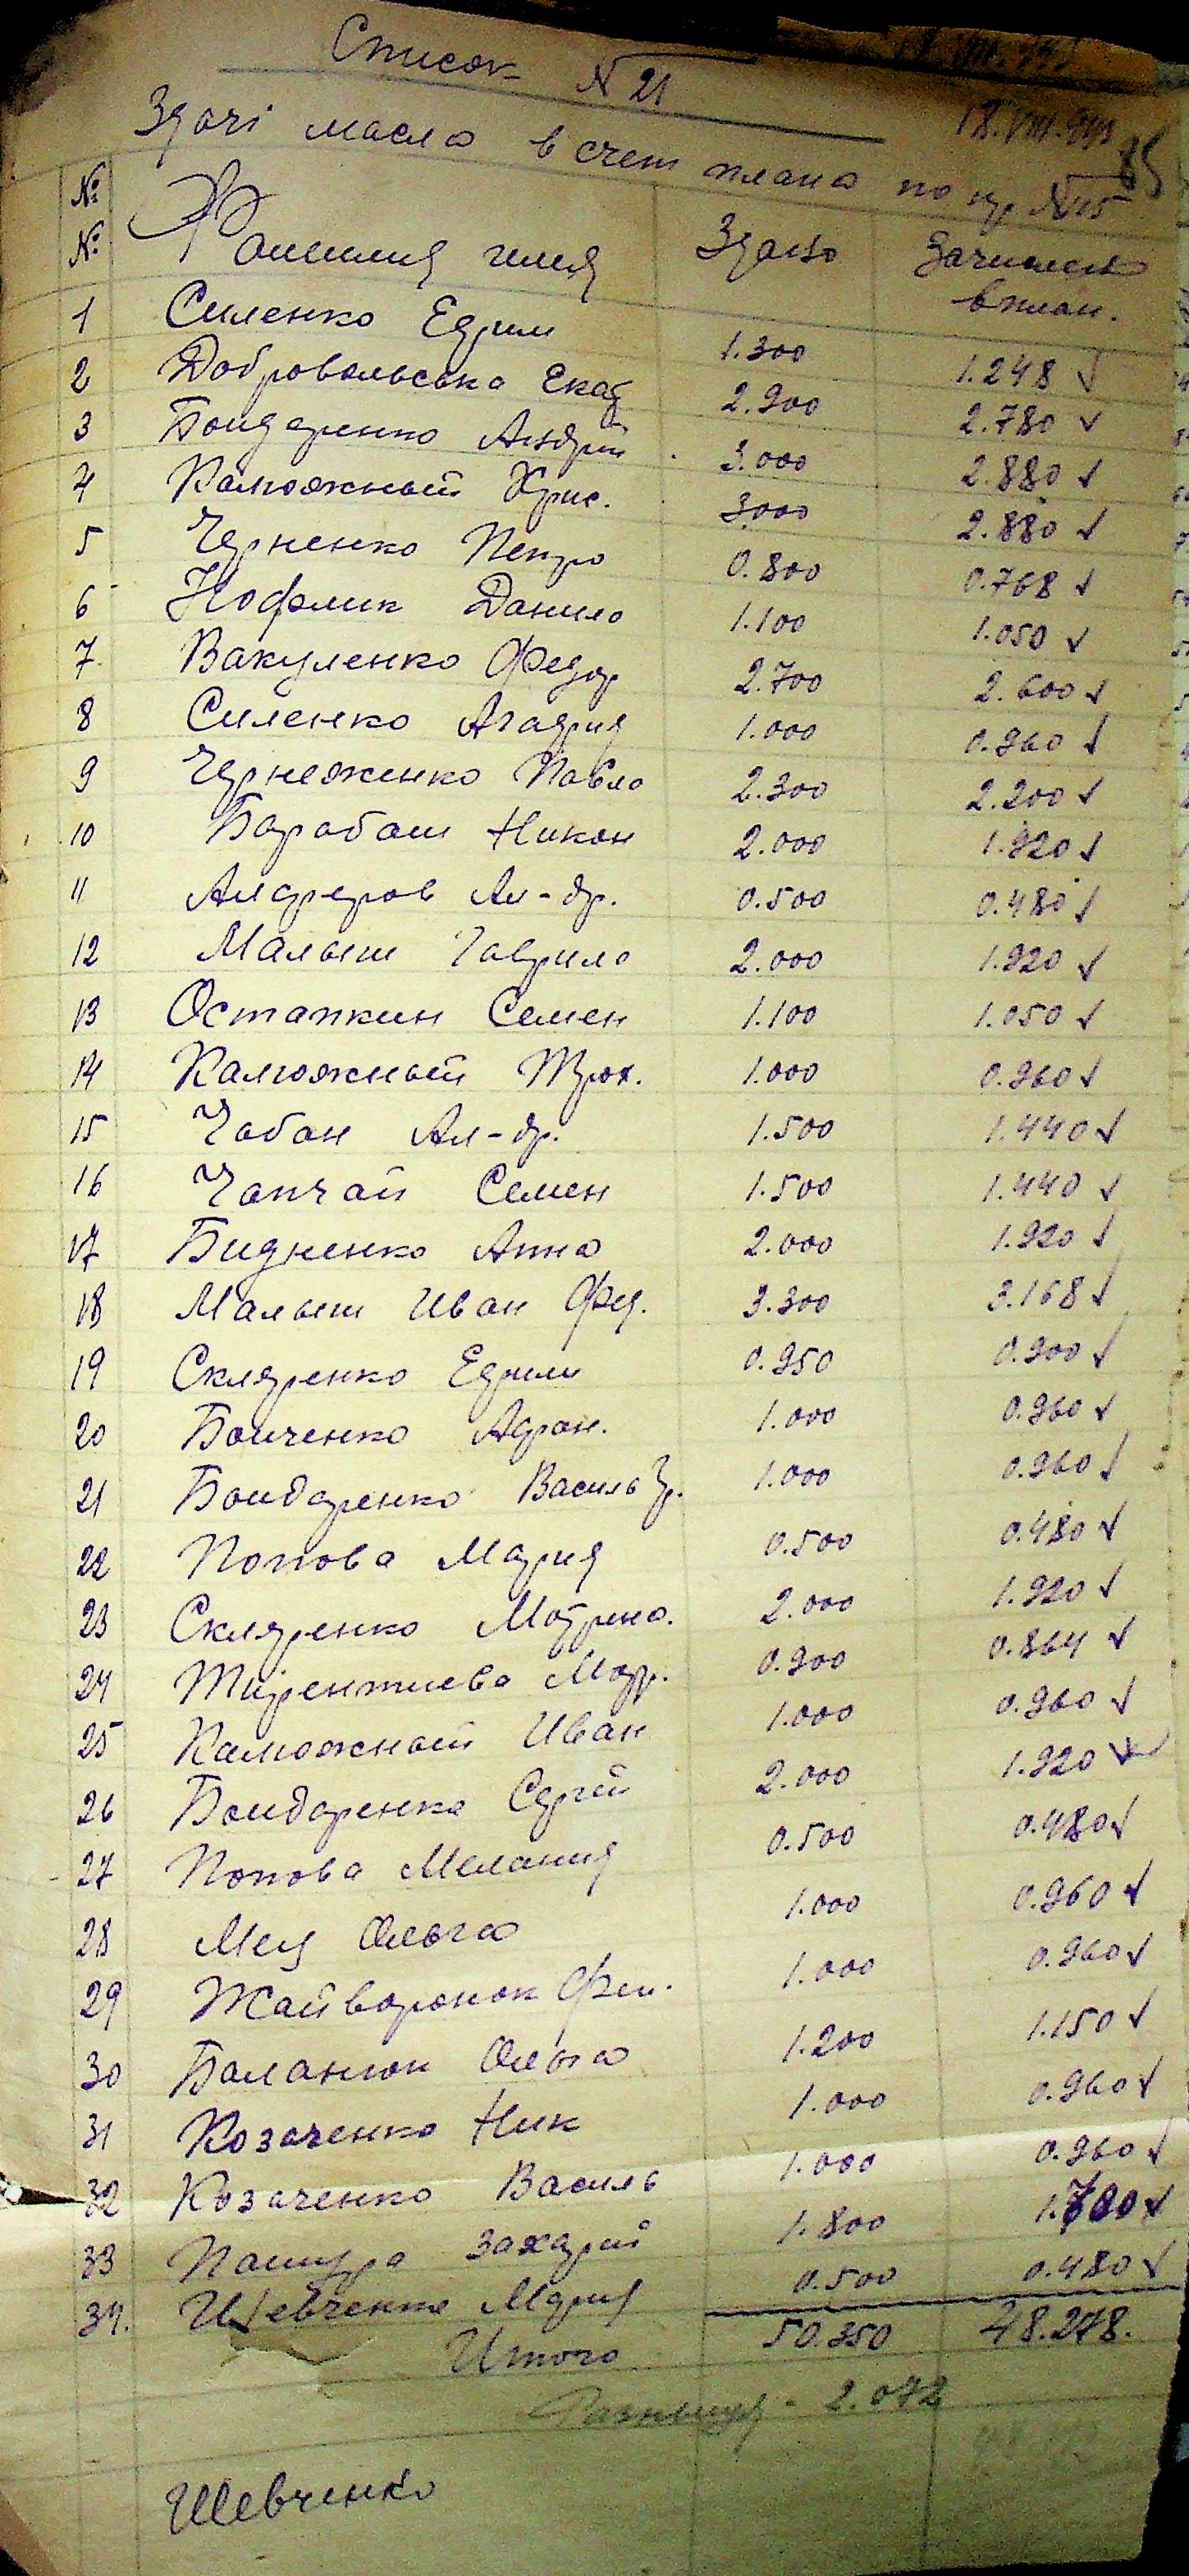 Список N 21
18.VIII.943
85
Здачі масла в счет плана по кр N 15
№ № Фамилия имя Здано Зачислено в план.
1 Силенко Ефим 1.300 1.248
2 Добровольська Екат 2.900 2.780
3 Бондаренко Андрій 3.000 2.880
4 Калюжный Хрис. 3000 2.880
5 Черненко Петро 0.800 0.768
6 Нофлик Данило 1.100 1.050
7. Вакуленко Федор 2.700 2.600
8 Силенко Агафия 1.000 0.960
9 Чернеженко Павло 2.300 2.200
10 Барабаш Никон 2.000 1.920
11 Алфеоров Ал-др. 0.500 0.480
12 Малыш Гаврило 2.000 1.920
13 Остапкин Семен 1.100 1.050
14 Калюжный Трох. 1.000 0.960
15 Чабан Ал-др. 1.500 1.440
16 Чапчай Семен 1.500 1.440
17 Бидненко Анна 2.000 1.920
18 Малыш Иван Фед. 3.300 3.168
19 Скляренко Ефим 0.950 0.900
20 Бойченко Афан. 1.000 0.960
21 Бондаренко Василь Гр. 1.000 0.960
22 Попова Мария 0.500 0.480
23 Скляренко Мотрена. 2.000 1.920
24 Мар. 0.900 0.864
25 Калюжный Иван 1.000 0.960
26 Бондаренко Сергій 2.000 1.920
27 Попова Мелания 0.500 0.480
28 Мец Ольга 1.000 0.960
29 Жайворонок Фен. 1.000 0.960
30 Баланюк Ольга 1.200 1.150
31 Козаченко Ник 1.000 0.960
32 Козаченко Василь 1.000 0.960
33 Пашура Захарий 1.800 1.700
34. Шевченко Мария 0.500 0.480
Итого 50.350 48.278.
Разница - 2.072
Шевченко